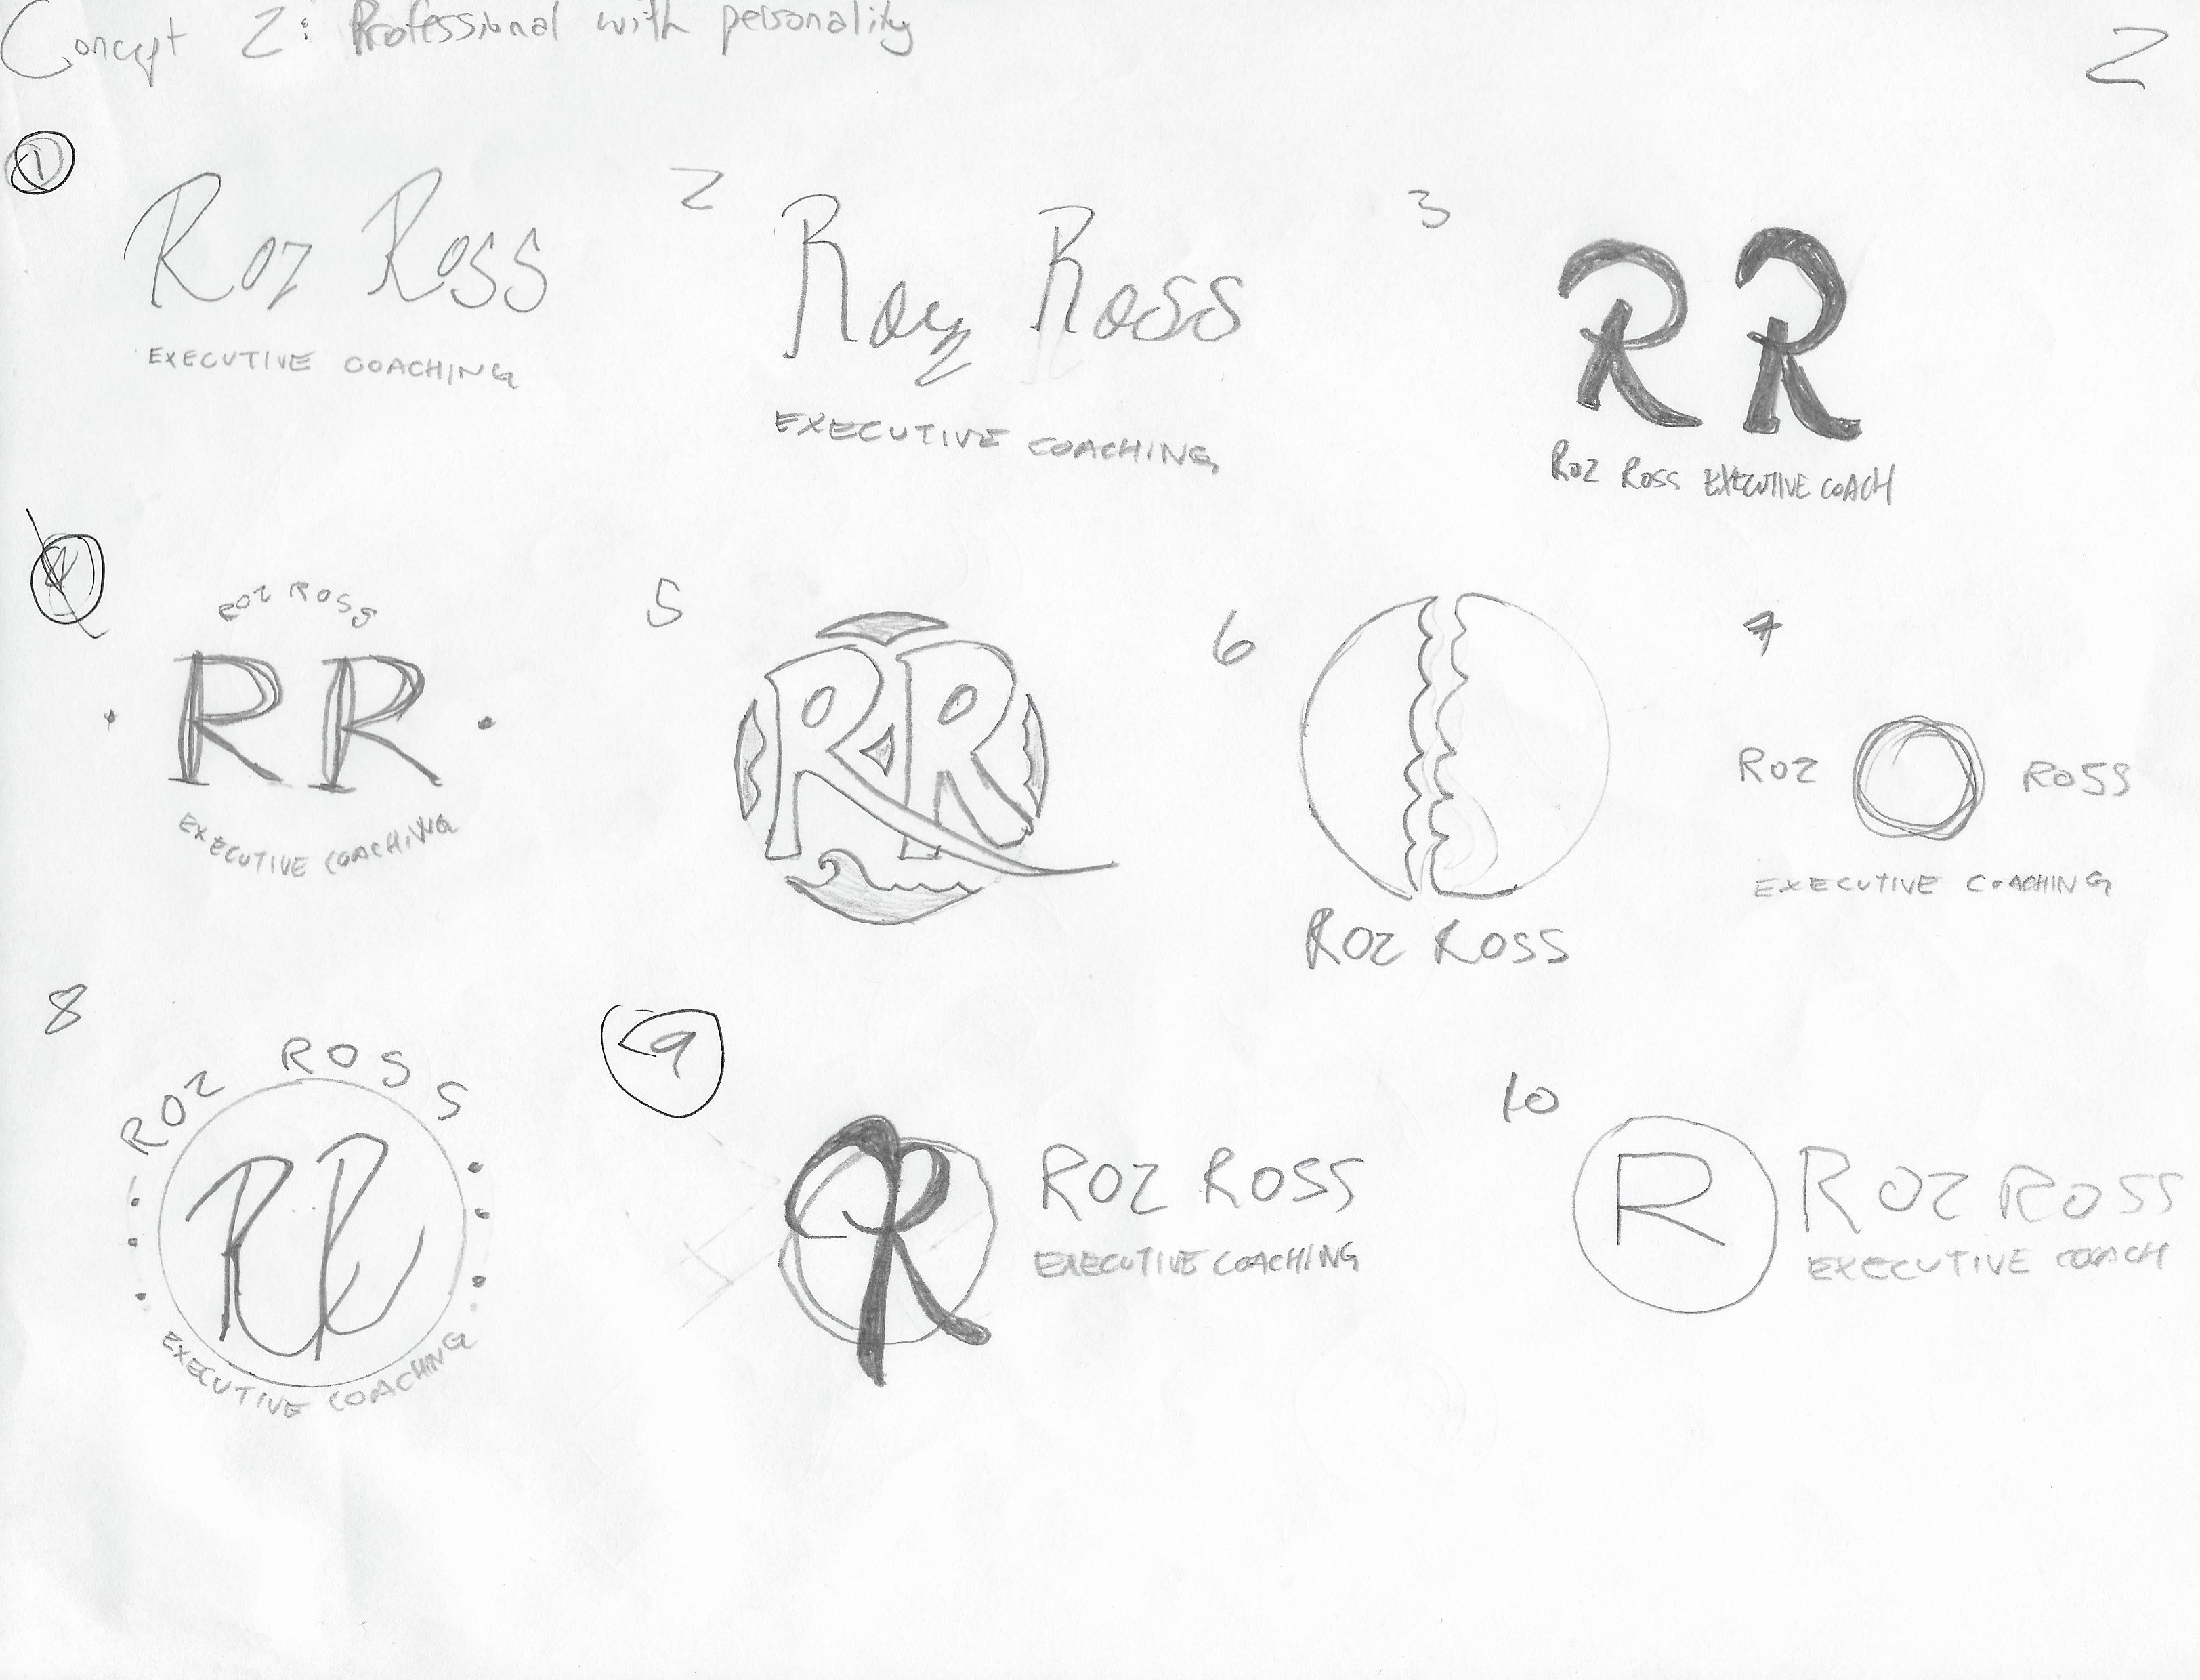 Concept 2: Professional with personality
2
1
Roz Ross
EXECUTIVE COACHING
2
Roz Ross
EXECUTIVE COACHING
3
RR
ROZ ROSS EXECUTIVE COACH
4
ROZ ROSS
RR
EXECUTIVE COACHING
5
RR
6
ROZ ROSS
7
ROZ ROSS
EXECUTIVE COACHING
8
ROZ ROSS
RR
EXECUTIVE COACHING
9
R
ROZ ROSS
EXECUTIVE COACHING
10
R
ROZ ROSS
EXECUTIVE COACH